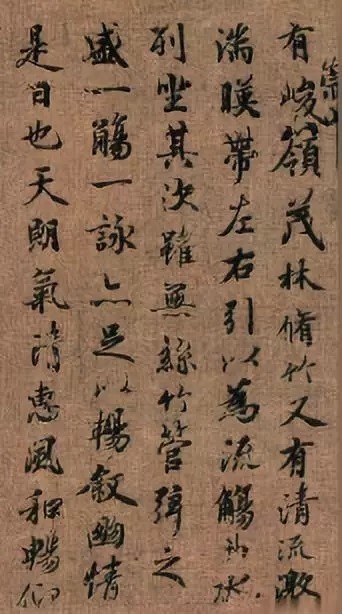 有崇山峻嶺茂林脩竹又有清流激
湍暎帶左右引以為流觴曲水
列坐其次雖無絲竹管弦之
盛一觴一詠亦足以暢敘幽情
是日也天朗氣清惠風和暢仰